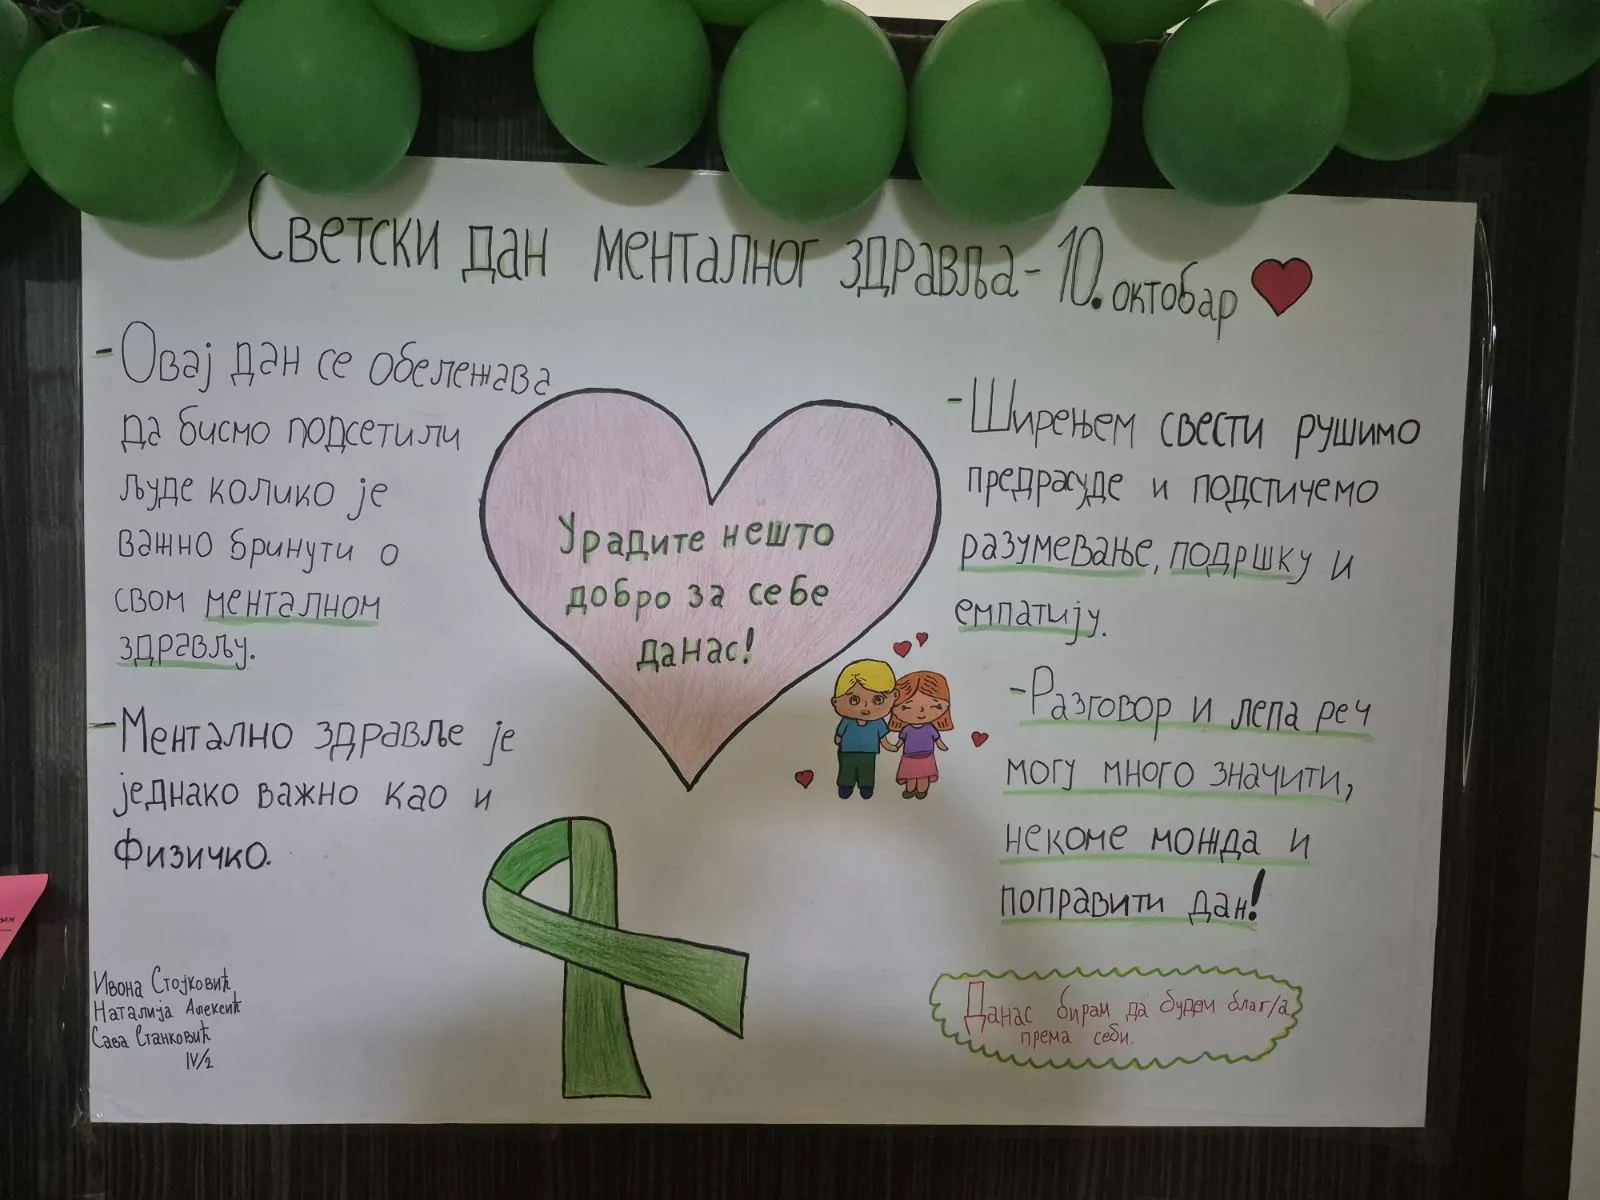 Светски дан менталног здравља - 10. октобар
- Овај дан се обележава
да бисмо подсетили
људе колико је
важно бринути о
свом менталном
здрављу.
- Ментално здравље је
једнако важно као и
физичко.
Урадите нешто
добро за себе
данас!
- Ширењем свести рушимо
предрасуде и подстичемо
разумевање, подршку и
емпатију.
- Разговор и лепа реч
могу много значити,
некоме можда и
поправити дан!
Данас бирам да будем благ/а
према себи.
Ивона Стојковић
Наталија Алексић
Сава Станковић
IV/2